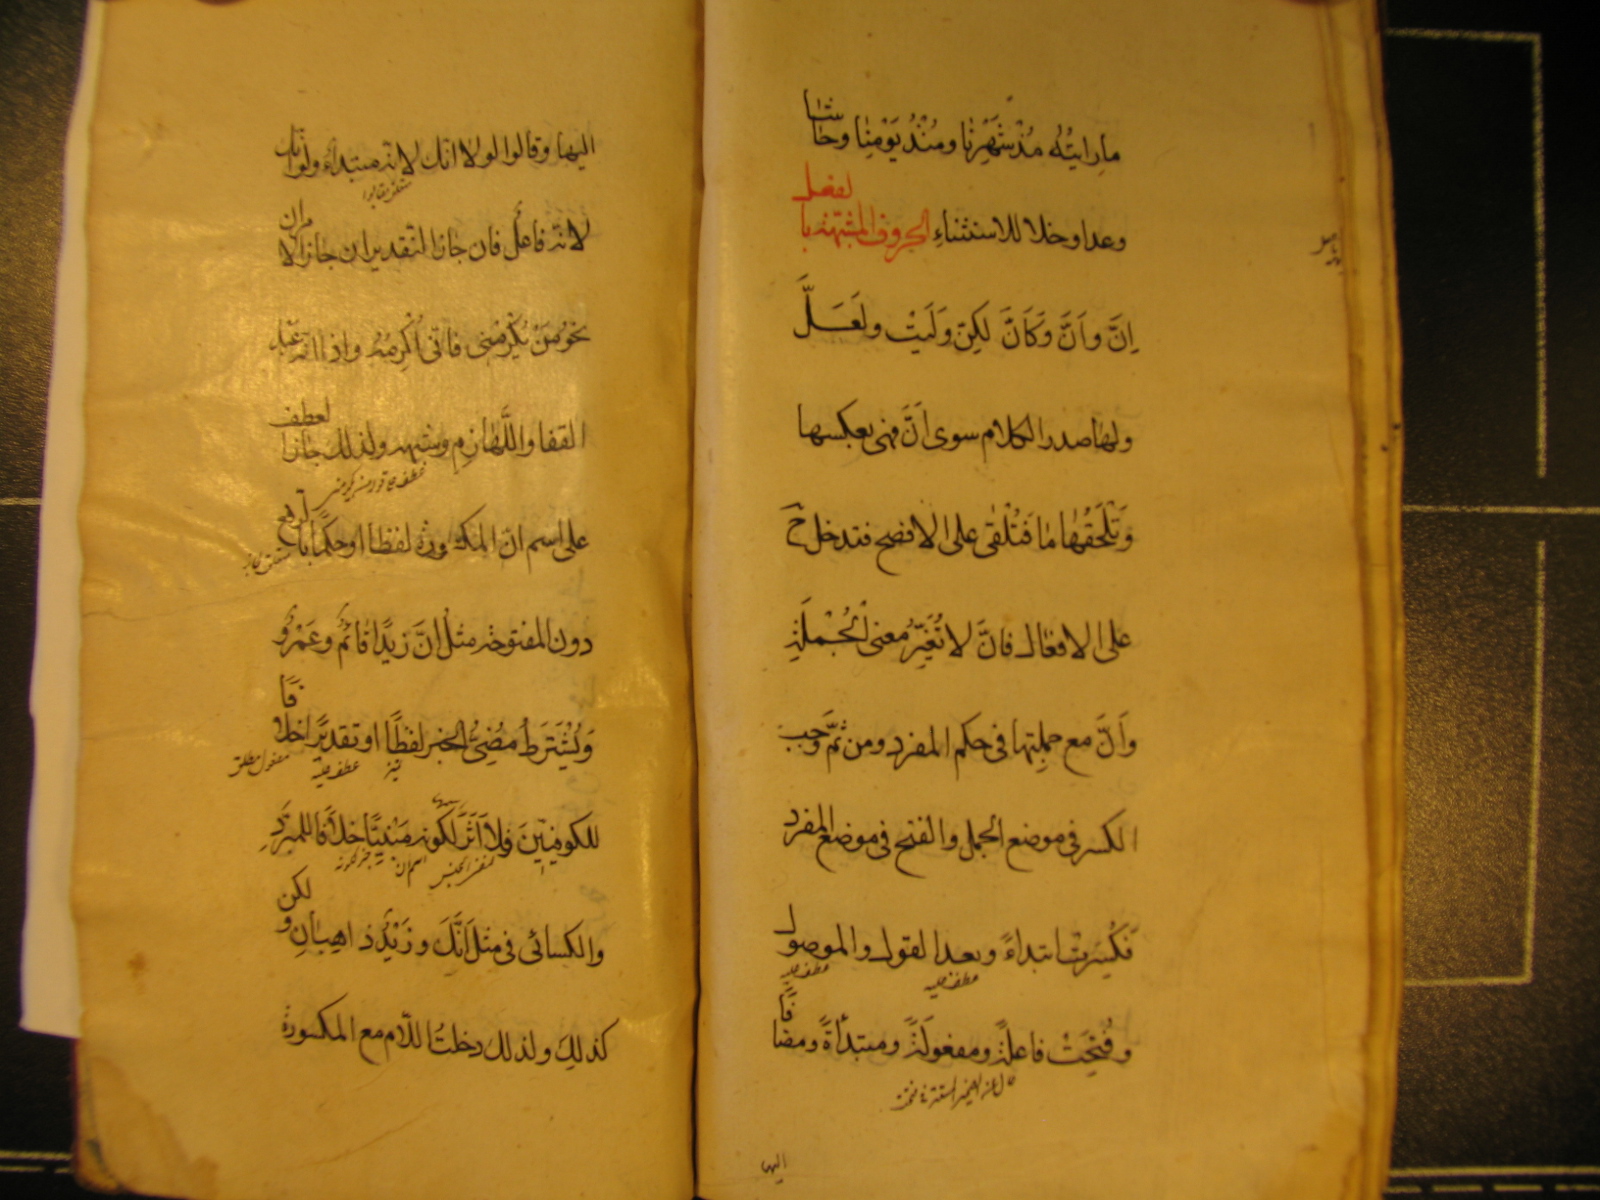 ما رايته مذ شهرنا ومنذ يومنا وحاشا
وعدا وخلا للاستثناء الحروف المشبهة بالفعل
اِنَّ واَنَّ وَكَاَنَّ لكِنّ وَلَيتْ ولَعَلَّ
ولها صدر الكلام سوى اَنَّ فهى بعكسها
وَتَلْحَقُهٰا مٰا فَتُلْقٰى على الافصح فتدخل ح
على الافعال فاِنَّ لا تُغَيِّرُ معنى الْجُمْلَةِ
واَنَّ مع جملتها فى حكم المفرد ومن ثَمَّ وَجَب
الكسر فى موضع الجمل والفتح فى موضع المفرد
فَكُسِرَتْ ابتداءً وبعد القول والموصول
عطف عليه
عطف عليه
وفُتِحَتْ فاعلةً ومفعولَةً ومبتدأةً ومضافًا
اليها
اليها وقالوا لولا انّك لانه مبتداءٌ ولو انّك
متعلق بقالوا
لانّه فاعلٌ فان جاز التقديران جاز الامران
نحو مَنْ يُكْرِمْنِى فانّى اُكْرِمُهُ واذا انّه عَبْد
القفا واللَّهٰازِمِ وشبهه ولذلك جاز العطف
على اسم انّ المكسورة لفظًا او حكمًا بالرفع
دون المفتوحة مثل اِنَّ زيدًا قٰائمٌ وعَمْرٌو
وَيُشْتَرطُ مُضِىُّ الخبر لفظًا او تقديرًا خلافًا
تميز
عطف عليه
مفعول مطلق
للكوفيّينَ ولا اَثَرَ لكونه مَبْنِيًّا خلافًا للمبرّدِ
لنفى الجنس
اسم ان
خبر لكونه
والكسائى فى مثل اَنَّكَ وزَيْدٌ ذاهبانِ ولكن
كذلِكَ ولذلك دخلت اللّام مع المكسورة